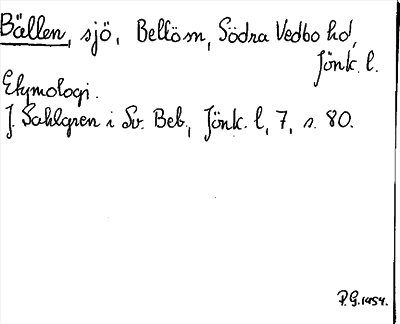 Bällen, sjö, Bellö sn, Södra Vedbo hd,
Jönk. l.
Etymologi.
J. Sahlgren i Sv. Beb., Jönk. l, 7, s. 80.
P.G. 1954.